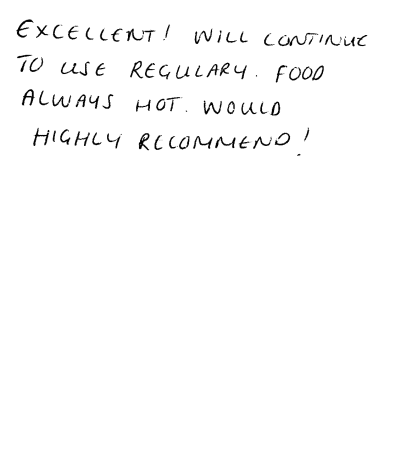 EXCELLENT! WILL CONTINUE
TO USE REGULARY. FOOD
ALWAYS HOT. WOULD
HIGHLY RECOMMEND!